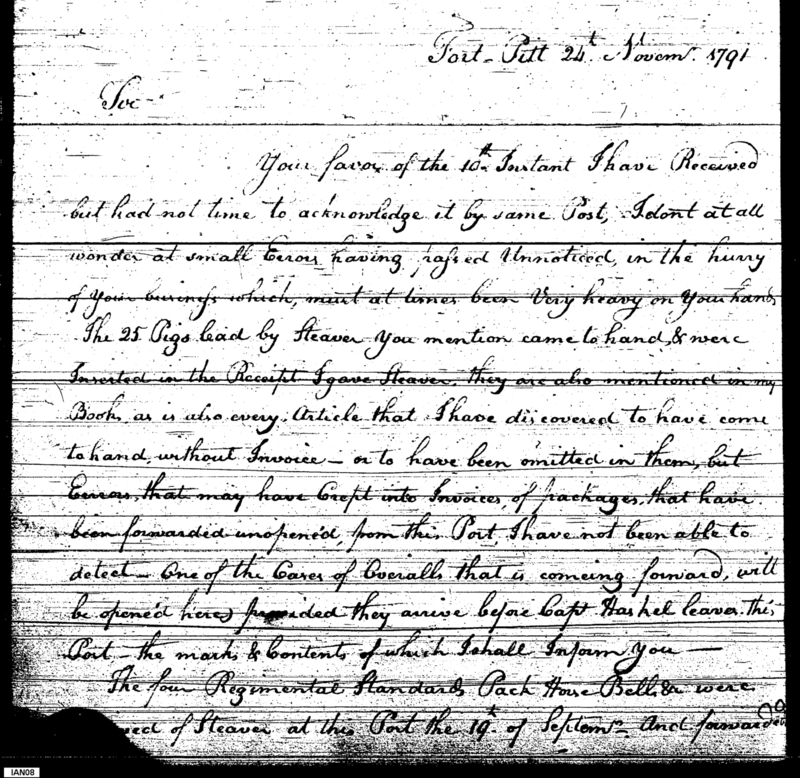 Fort-Pitt 24th Novemr. 1791
Sir
Your favor of the 10th Instant I have Received
but had not time to acknowledge it by same Post, I dont at all
wonder at small Errors having passed Unnoticed, in the hurry
of Your business which, must at times been Very heavy on Your hands
The 25 Pigs lead by Steaver You mention came to hand, & were
Inserted in the Receipt I gave Steaver. they are also mentioned in my
Books, as is also every Article that I have discovered to have come
to hand, without Invoice - or to have been omitted in them, but
Errors, that may have Crept into Invoices, of packages, that have
been forwarded unopened, from this Post, I have not been able to
detect - One of the Cases of Overalls that is comeing forward, will
be opened here, provided they arrive before Capt Haskel leaves this
Post - the marks & Contents of which I shall Inform You -
The four Regimental Standards Pack Horse Bells & were
of Steaver at this Post the 19th of Septemr. And forwarded
IAN08